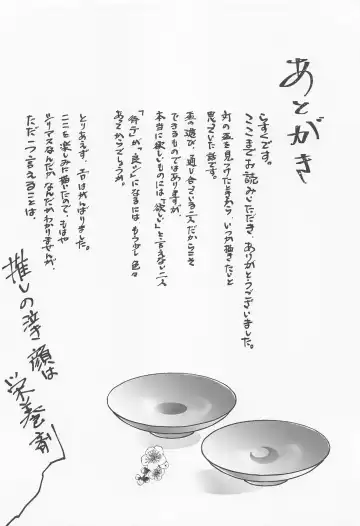 あとがき
らすくです。
ここまでお読みいただき ありがとうございました。
対の盃を見つけたときから、いつか描きたいと
思っていた話です。
盃の遊び、通じ合っている二人だからこそ
できるものではありますが、
本当に欲しいものには「欲しい」と言えない二人
「許す」が「良い」になるには もう少し色々
ありそうでしょうか。
とりあえず、エロはがんばりました。
ここを楽しみに描いたので、もはや
ヒリマスなんだか なんだかわかりませんが、
ただ一つ言えることは、
推しの泣き顔は
栄養剤